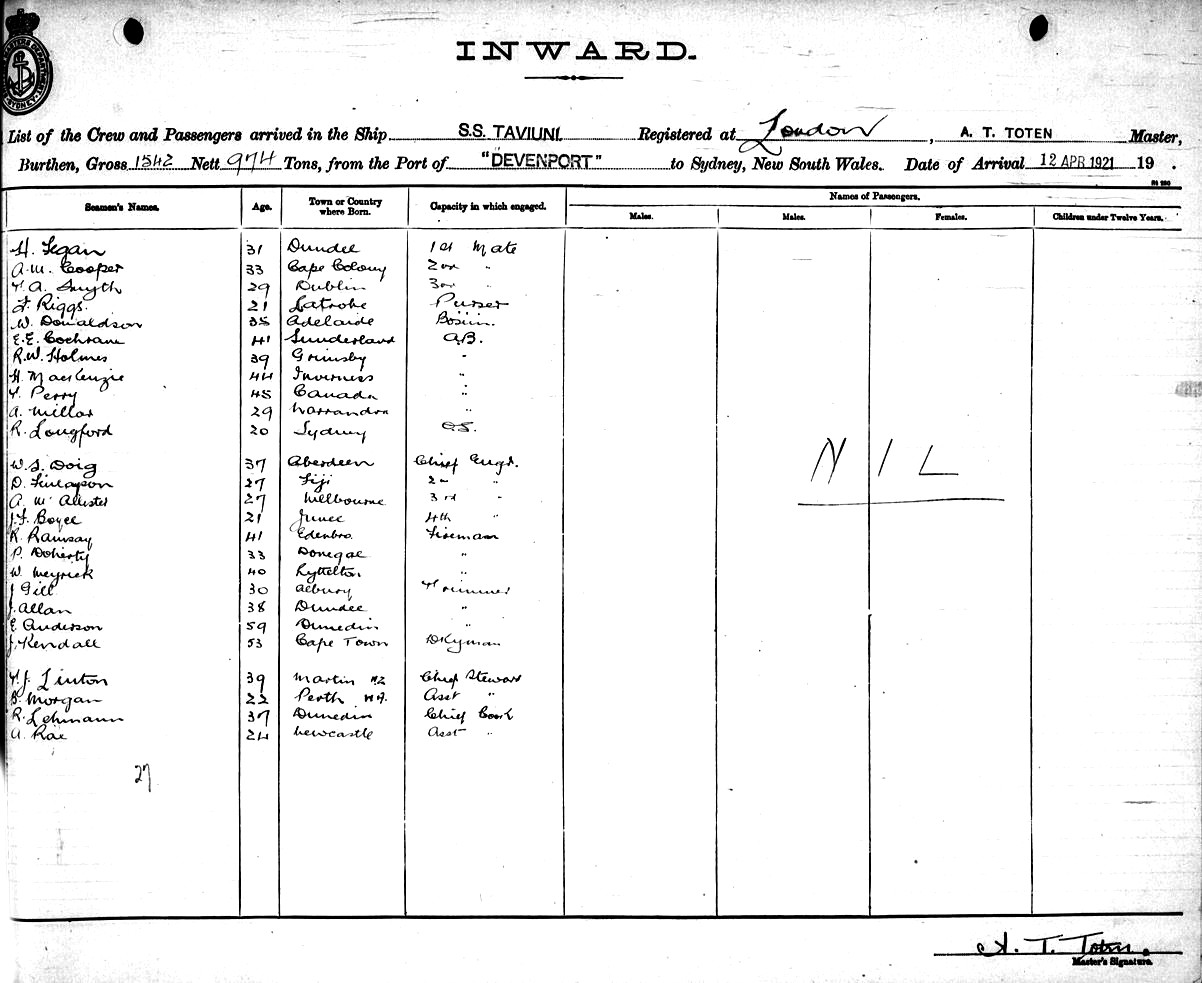 INWARD.
List of the Crew and Passengers arrived in the Ship S.S. TAVIUNI Registered at London, A. T. TOTEN Master,
Burthen, Gross 1542 Nett 974 Tons, from the Port of "DEVENPORT" to Sydney, New South Wales. Date of Arrival 12 APR 1921 19 .
Names of Passengers.
Seamen's Names. Age. Town or Country where Born. Capacity in which engaged. Males. Males. Females. Children under Twelve Years.
H. Fegan 31 Dundee 1st Mate
A.M. Cooper 33 Cape Colony 2nd "
A. Smyth 29 Dublin 3rd "
F. Riggs. 21 Latrobe Purser
W. Donaldson 35 Adelaide
E.E. Cochrane 41 Sunderland A.B.
R.W. Holmes 39 Grimsby "
H. MacKenzie 44 Inverness "
Perry 45 Canada "
A. Millar 29 Narrandra "
R. Longford 20 Sydney O.S.
W. S. Doig 37 Aberdeen Chief Engr.
D. Finlayson 27 Fiji 2nd "
A. McAllister 27 Melbourne 3rd "
J.F. Boyce 21 Junee 4th "
R. Ramsay 41 Edenbro. Fireman
P. Doherty 33 Donegal "
W. Meyrick 40 Lyttelton "
J Gill 30 Albury Trimmer
J. Allan 38 Dundee "
E. Anderson 59 Dunedin "
J. Kendall 53 Cape Town Dkyman
J. Linton 39 Martin NZ Chief Steward
B. Morgan 22 Perth W.A. Asst "
R. Lehmann 37 Dunedin Chief Cook
A. Rae 24 Newcastle Asst "
NIL
27
A. T. Toten.
Master's Signature.